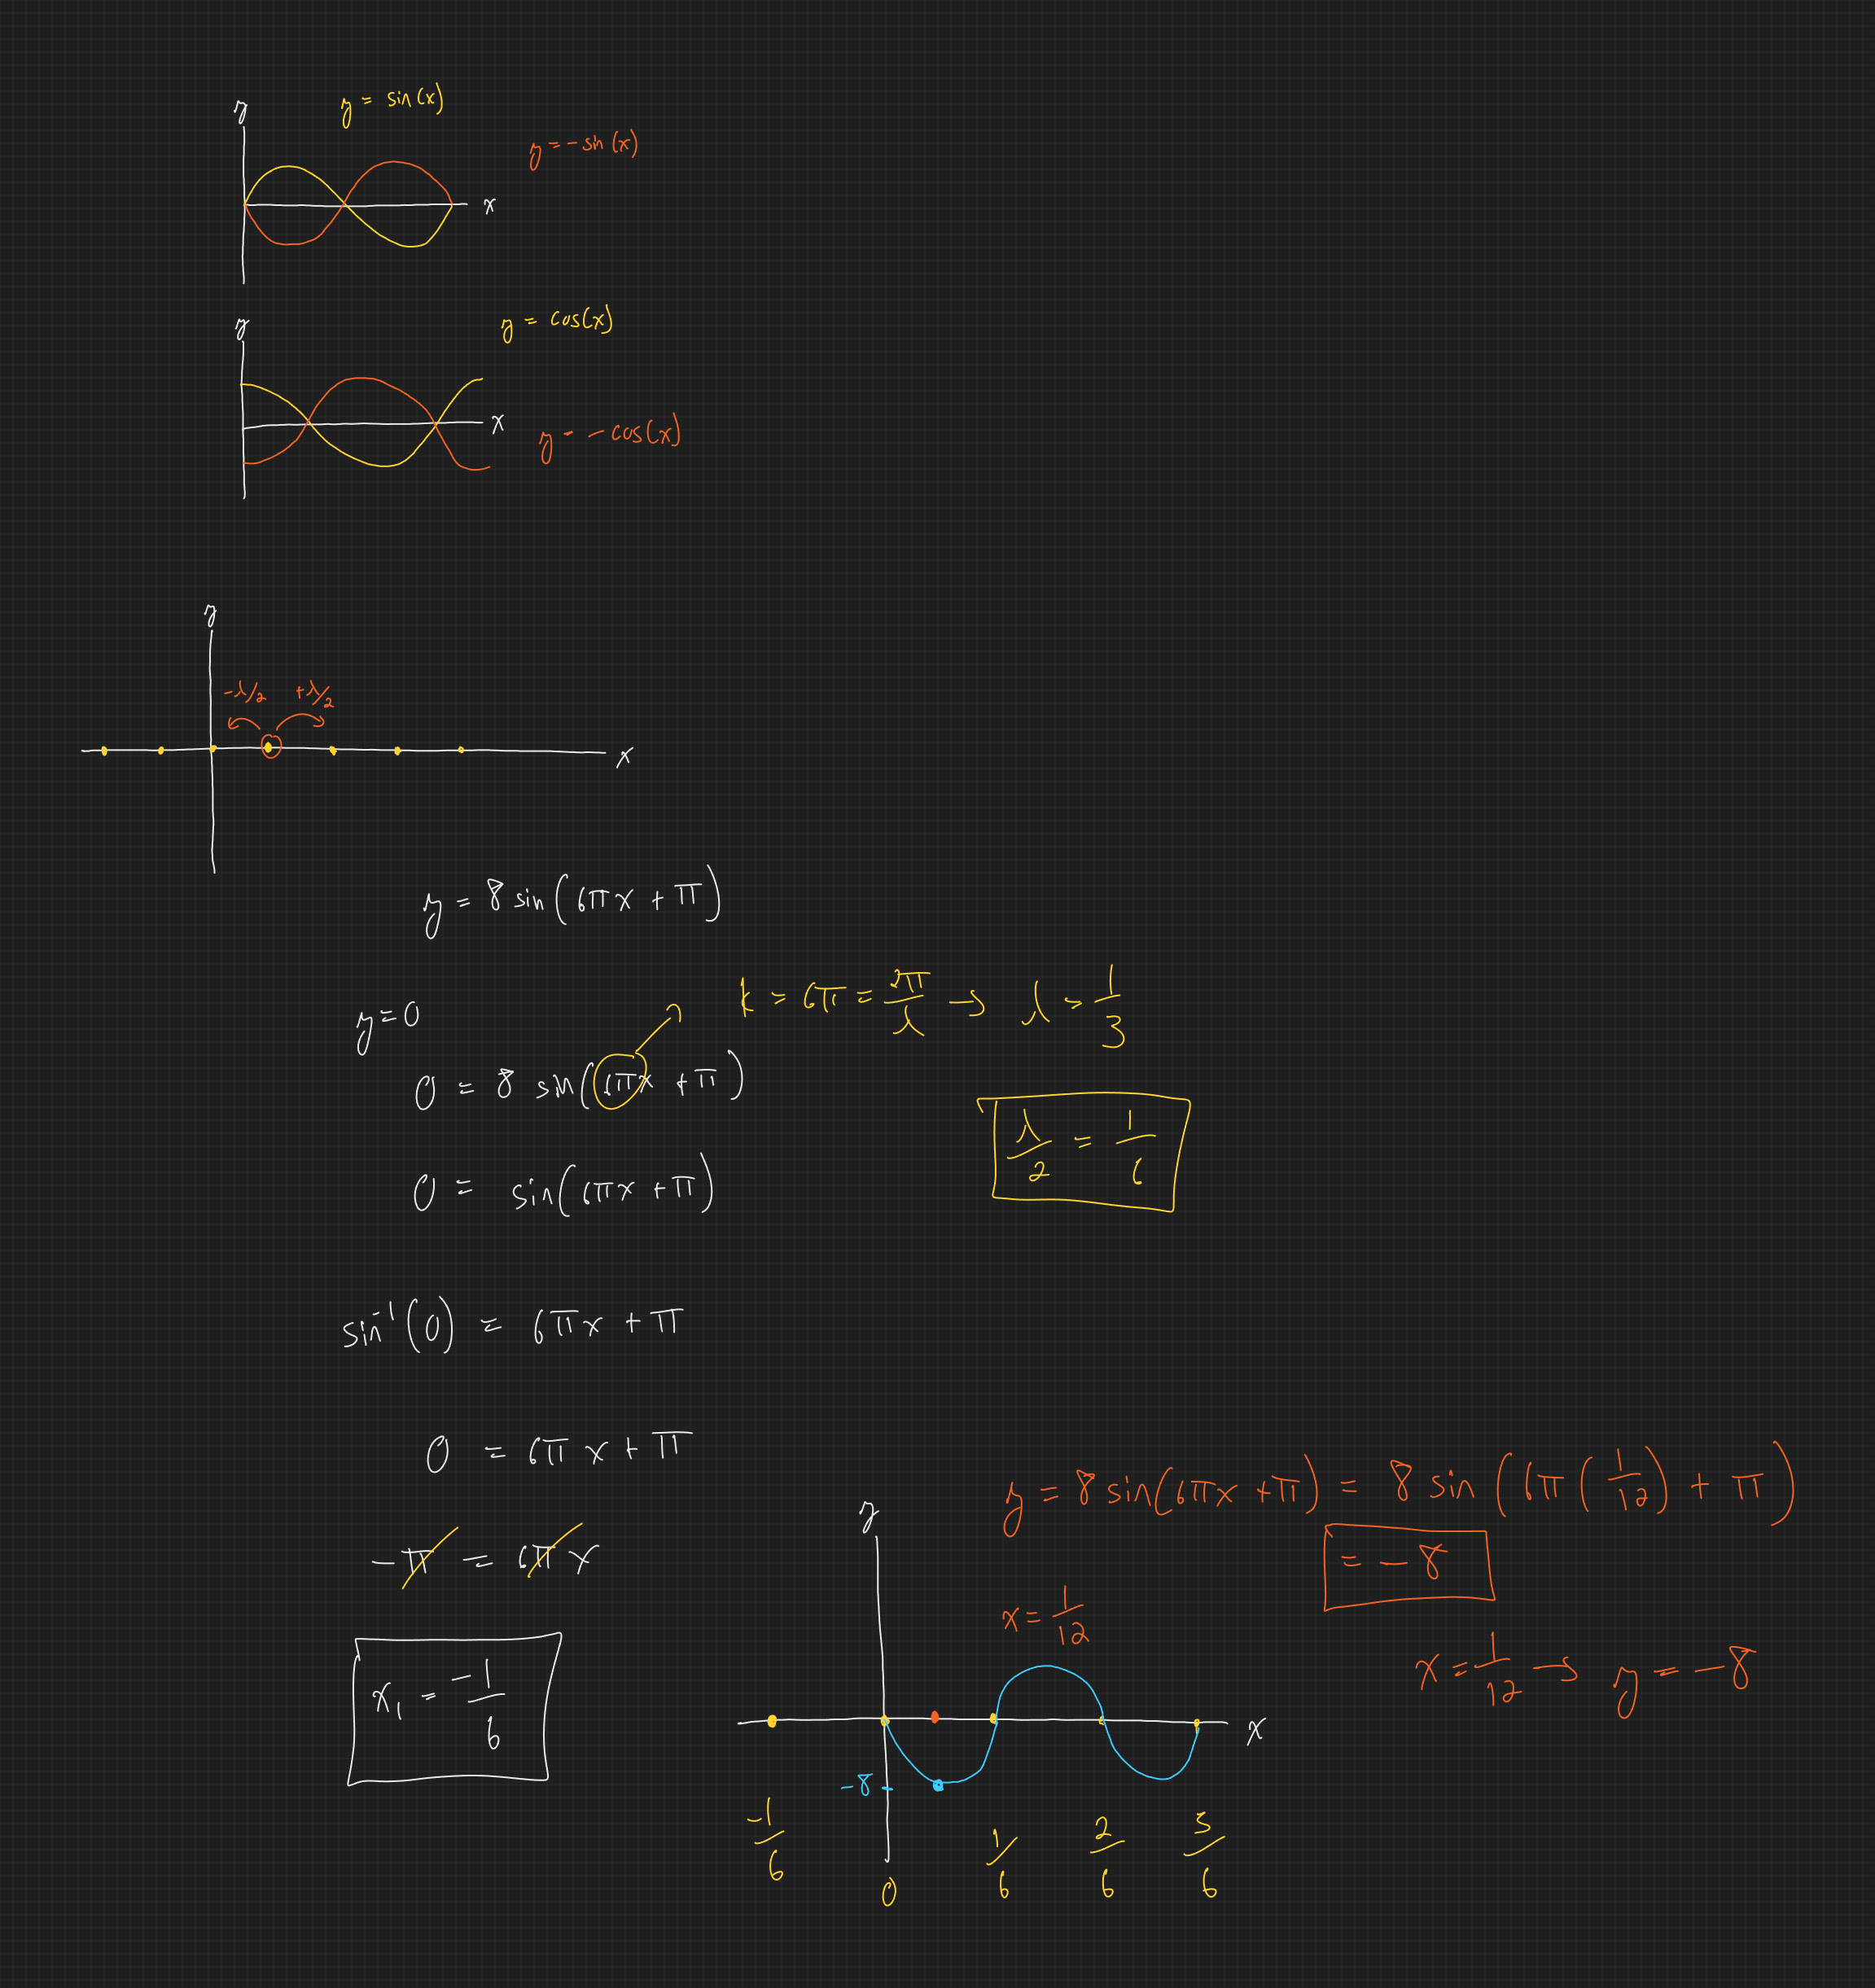 y
y = sin(x)
y = -sin(x)
x
y
y = cos(x)
x
y = -cos(x)
y
-λ/2 +λ/2
x
y = 8 sin(6πx + π)
k = 6π = 2π/λ → λ = 1/3
y=0
0 = 8 sin(6πx + π)
λ/2 = 1/6
0 = sin(6πx + π)
sin⁻¹(0) = 6πx + π
0 = 6πx + π
y = 8 sin(6πx + π) = 8 sin(6π(1/12) + π)
= -8
-π = 6πx
y
x = 1/12
x = 1/12 → y = -8
x₁ = -1/6
x
-8
-1/6 0 1/6 2/6 3/6